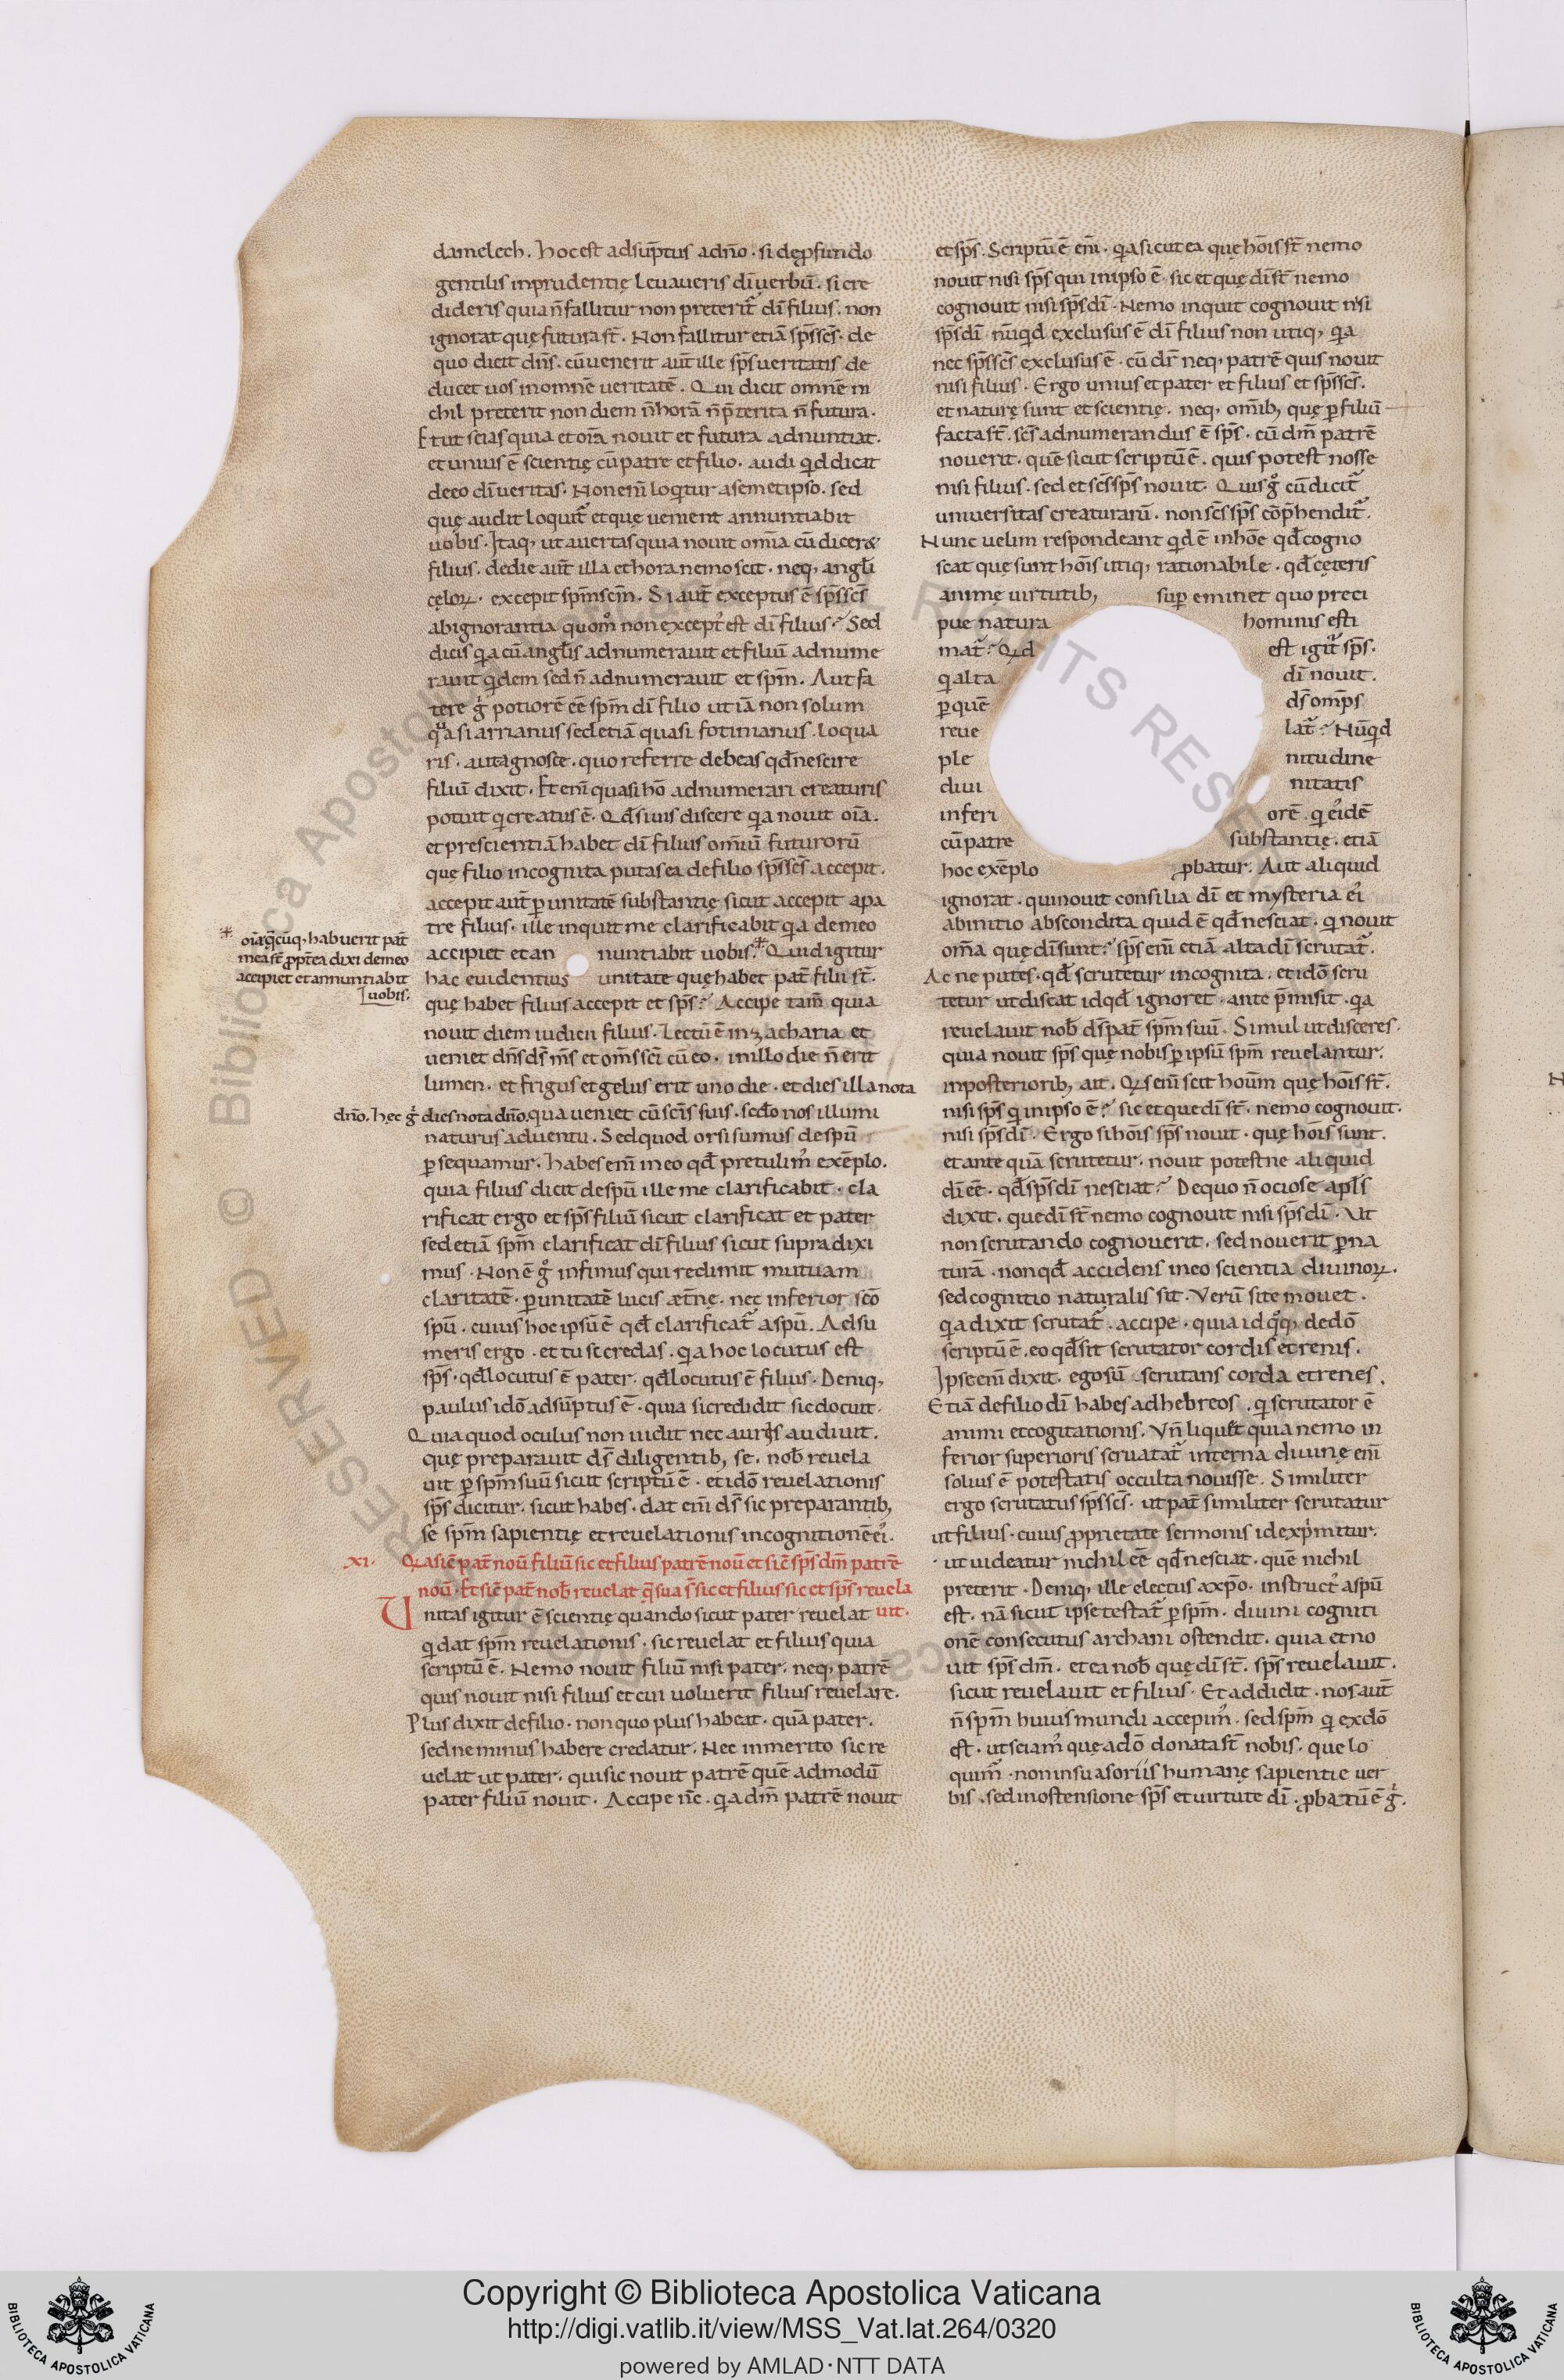 damelech. hoc est adsūptus adño. si de ꝓfundo
gentilis inprudentię levaveris dī verbū. si cre
dideris quia ñ fallitur non preterit᷑ dī filius. non
ignorat quę futura st̄. Non fallitur etiā sp̄s sc̄s. de
quo dicit dn̄s. cū venerit aut̄ ille sp̄s veritatis de
ducet vos in omnē veritatē. Qui dicit omnē ni
chil preterit non diem ñ horā ñ p̄terita ñ futura.
Et ut scias quia et oīa novit et futura adnuntiat.
et unius ē scientię cū patre et filio. audi qd dicat
de eo dī veritas. Non enī loqitur a semetipso. sed
quę audit loquit᷑ et quę venient annuntiabit
vobis. Itaq, ut avertas quia novit omīa cū dicer&
filius. de die aut̄ illa et hora nemo scit. neq, angli
cęloꝝ. excepit sp̄m sc̄m. Si aut̄ exceptus ē sp̄s sc̄s
ab ignorantia quom̊ non except᾽ est dī filius? Sed
dicis qa cū anglis adnumeravit et filiū adnume
ravit qdem sed ñ adnumeravit et sp̄m. Aut fa
tere g̊ potiorē ēē sp̄m dī filio ut iā non solum
qasi arrianus sed etiā quasi fotinianus loqua
ris. aut agnosce. quo referre debeas qd̄ nescire
filiū dixit. Et enī quasi hō adnumerari creaturis
potuit q creatus ē. Qd̄ si vis discere qa novit oīa.
et prescientiā habet dī filius omīū futurorū
quę filio incognita putas ea de filio sp̄s sc̄s accepit.
accepit aut̄ ꝑ unitatē substantię sicut accepit a pa
tre filius. ille inquit me clarificabit qa de meo
accipiet et an nuntiabit vobis.* Quid igitur
* oīa q̄cūq, habuerit pat̄
mea st̄ ꝓpt̄ea dixi de meo
accipiet et annuntiabit
vobis.
hac evidentius unitate quę habet pat̄ filii st̄.
quę habet filius accepit et sp̄s? Accipe tam̄ quia
novit diem iudicii filius. Lectū ē in zacharia et
veniet dn̄s ds̄ m̄s et om̄s sci cū eo. in illo die ñ erit
lumen. et frigus et gelus erit uno die. et dies illa nota
dn̄o. hęc g̊ dies nota dn̄o. qua veniet cū scīs suis. secdo nos illumi
naturus adventu. Sed quod orsi sumus de sp̄u
ꝑsequamur. habes enī in eo qd̄ pretulim᾽ exēplo.
quia filius dicit de sp̄u ille me clarificabit. cla
rificat ergo et sp̄s filiū sicut clarificat et pater
sed etiā sp̄m clarificat dī filius sicut supra dixi
mus. Non ē g̊ infimus qui redimit mutuam
claritatē. ꝑ unitatē lucis æt̄nę. nec inferior scō
sp̄u. cuius hoc ipsū ē qd̄ clarificat᷑ a sp̄u. Adsu
meris ergo. et tu si credas. qa hoc locutus est
sp̄s. qd̄ locutus ē pater. qd̄ locutus ē filius. Deniq,
paulus idō adsūptus ē. quia sic credidit sic docuit.
Quia quod oculus non vidit nec auris audivit.
quę preparavit ds̄ diligentib, se. nob̄ revela
vit ꝑ sp̄m suū sicut scriptū ē. et idō revelationis
sp̄s dicitur. sicut habes. dat enī ds̄ sic preparantib,
se sp̄m sapientię et revelationis in cognitionē ei᾽.
xi. Qa sic̄ pat̄ noū filiū sic et filius patrē noū et sic̄ sp̄s dm̄ patrē
noū. Et sic̄ pat̄ nob̄ revelat q̄ sua s̄t sic et filius sic et sp̄s revela
Unitas igitur ē scientię quando sicut pater revelat vit.
q dat sp̄m revelationis. sic revelat et filius quia
scriptū ē. Nemo novit filiū nisi pater. neq, patrē
quis novit nisi filius et cui voluerit filius revelare.
Plus dixit de filio. non quo plus habeat. quā pater.
sed ne minus habere credatur. Nec inmerito sic re
velat ut pater. qui sic novit patrē quē admodū
pater filiū novit. Accipe n̄c. qa dm̄ patrē novit
et sp̄s. Scriptū ē enī. qa sicut ea quę hoīs st̄ nemo
novit nisi sp̄s qui in ipso ē. sic et quę dī st̄ nemo
cognovit nisi sp̄s dī. Nemo inquit cognovit nisi
sp̄s dī. nūqd exclusus ē dī filius non utiq, qa
nec sp̄s sc̄s exclusus ē. cū dn̄r neq, patrē quis novit
nisi filius. Ergo unius et pater et filius et sp̄s sc̄s.
et naturę sunt et scientię. neq, omīb, quę ꝑ filiū
facta st̄. sc̄s adnumerandus ē sp̄s. cū dm̄ patrē
noverit. quē sicut scriptū ē. quis potest nosse
nisi filius. sed et sc̄s sp̄s novit. Quis g̊ cū dicit᷑
universitas creaturarū. non sc̄s sp̄s cōp̄hendit᷑.
Nunc velim respondeant qd ē in hoē qd̄ cogno
scat quę sunt hoīs utiq, rationabile. qd̄ cęteris
animę virtutib, supeminet quo preci
pue natura hominis esti
mat᷑? Qd est igit᷑ sp̄s.
q alta dī novit.
ꝑ quē ds̄ omp̄s
reve lat᷑? Nūqd
ple nitudine
divi nitatis
inferi orē. q ei᾽dē
cū patre substantię. etiā
hoc exēplo ꝓbatur. Aut aliquid
ignorat. qui novit consilia dī et mysteria ei᾽
ab initio abscondita quid ē qd̄ nesciat. q novit
om̄a quę dī sunt? sp̄s enī etiā alta dī scrutat᷑.
Ac ne putes. qd̄ scrutetur incognita. et idō scru
tetur ut discat id qd̄ ignoret. ante p̄misit. qa
revelavit nob̄ ds̄ pat̄ sp̄m suū. Simul ut disceres.
quia novit sp̄s quę nobis ꝑ ipsū sp̄m revelantur.
in posteriorib, ait. Qs enī scit hoūm quę hoīs st̄.
nisi sp̄s q in ipso ē? sic et que dī st̄. nemo cognovit.
nisi sp̄s dī. Ergo si hoīs sp̄s novit. quę hoīs sunt.
et ante quā scrutetur. novit potestne aliquid
dī ēē. qd̄ sp̄s dī nesciat? De quo ñ ociose apls
dixit. que dī st̄ nemo cognovit nisi sp̄s dī. Ut
non scrutando cognoverit. sed noverit ꝑ na
turā. non qd̄ accidens in eo scientia divinoꝝ.
sed cognitio naturalis sit. Verū si te movet.
qa dixit scrutat᷑. accipe. quia id qoq, de dō
scriptū ē. eo qd̄ sit scrutator cordis et renis.
Ipse enī dixit. ego sū scrutans corda et renes.
Etiā de filio dī habes ad hebreos. q scrutator ē
animi et cogitationis. Vn̄ liquet quia nemo in
ferior superioris scruatat᷑ interna divinę enī
solius ē potestatis occulta novisse. Similiter
ergo scrutatus sp̄s sc̄s. ut pat̄ similiter scrutatur
ut filius. cuius ꝓprietate sermonis id exp̄mitur.
ut videatur nichil ēē qd̄ nesciat. quē nichil
preterit. Deniq, ille electus a xp̄o. instruct᾽ a sp̄u
est. nā sicut ipse testat᷑ ꝑ sp̄m. divini cogniti
onē consecutus archani ostendit. quia et no
vit sp̄s dm̄. et ea nob̄ quę dī st̄. sp̄s revelavit.
sicut revelavit et filius. Et addidit. nos aut̄
ñ sp̄m huius mundi accepim᾽. sed sp̄m q ex dō
est. ut sciam᾽ que a dō donata st̄ nobis. que lo
quim᷑. non in suasoriis humanę sapientie ver
bis. sed in ostensione sp̄s et virtute dī. ꝓbatū ē g̊.
Copyright © Biblioteca Apostolica Vaticana
http://digi.vatlib.it/view/MSS_Vat.lat.264/0320
powered by AMLAD · NTT DATA
BIBLIOTECA APOSTOLICA VATICANA
BIBLIOTECA APOSTOLICA VATICANA